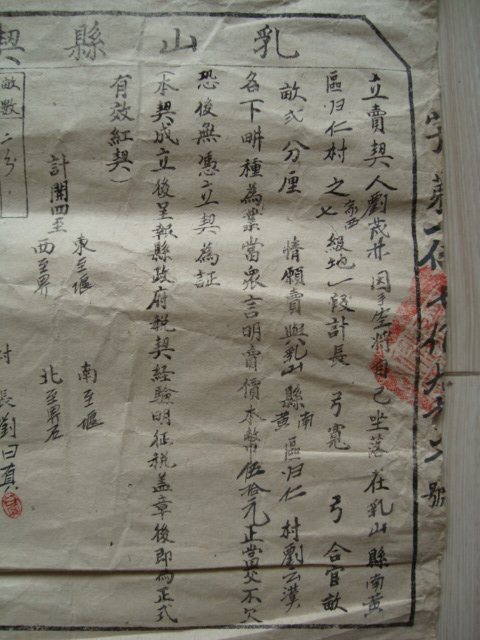 乳山縣契
字第 號
立賣契人劉茂井因手乏將自己坐落在乳山縣南黄
區归仁村之家西七級地一段計長 弓寬 弓合官畝
畝弍分厘情願賣與乳山縣南黄區归仁村劉云漢
名下畊種為業當衆言明賣價本幣伍拾元正當交不欠
恐後無憑立契為証
本契成立後呈報縣政府税契経驗明征税盖章後即為正式
有效紅契）
計開四至
東至堰 南至堰
西至界 北至界石
村長劉曰真
畝數
二分